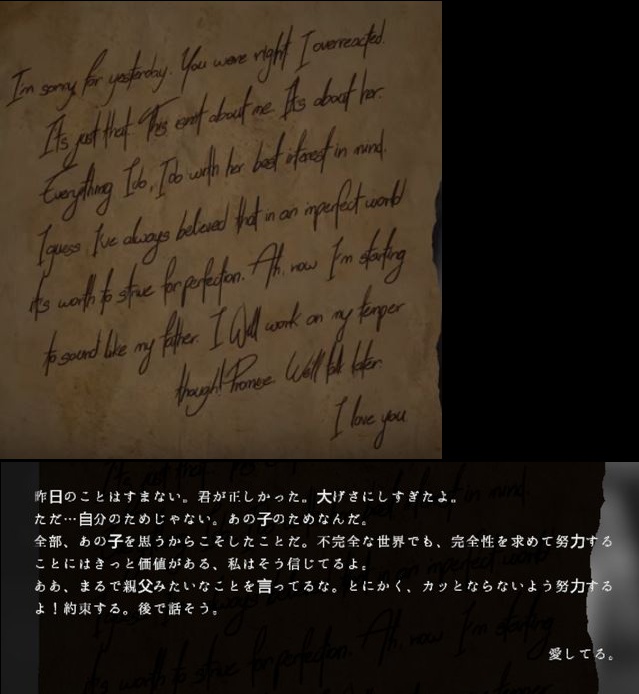 I'm sorry for yesterday. You were right I overreacted.
It's just that. This isn't about me. It's about her.
Everything I do, I do with her best interest in mind.
I guess I've always believed that in an imperfect world
it's worth to strive for perfection. Ah, now I'm starting
to sound like my father. I Will work on my temper
though! Promise. We'll talk later.
I love you
昨日のことはすまない。君が正しかった。大げさにしすぎたよ。
ただ…自分のためじゃない。あの子のためなんだ。
全部、あの子を思うからこそしたことだ。不完全な世界でも、完全性を求めて努力する
ことにはきっと価値がある、私はそう信じてるよ。
ああ、まるで親父みたいなことを言ってるな。とにかく、カッとならないよう努力する
よ！約束する。後で話そう。
愛してる。